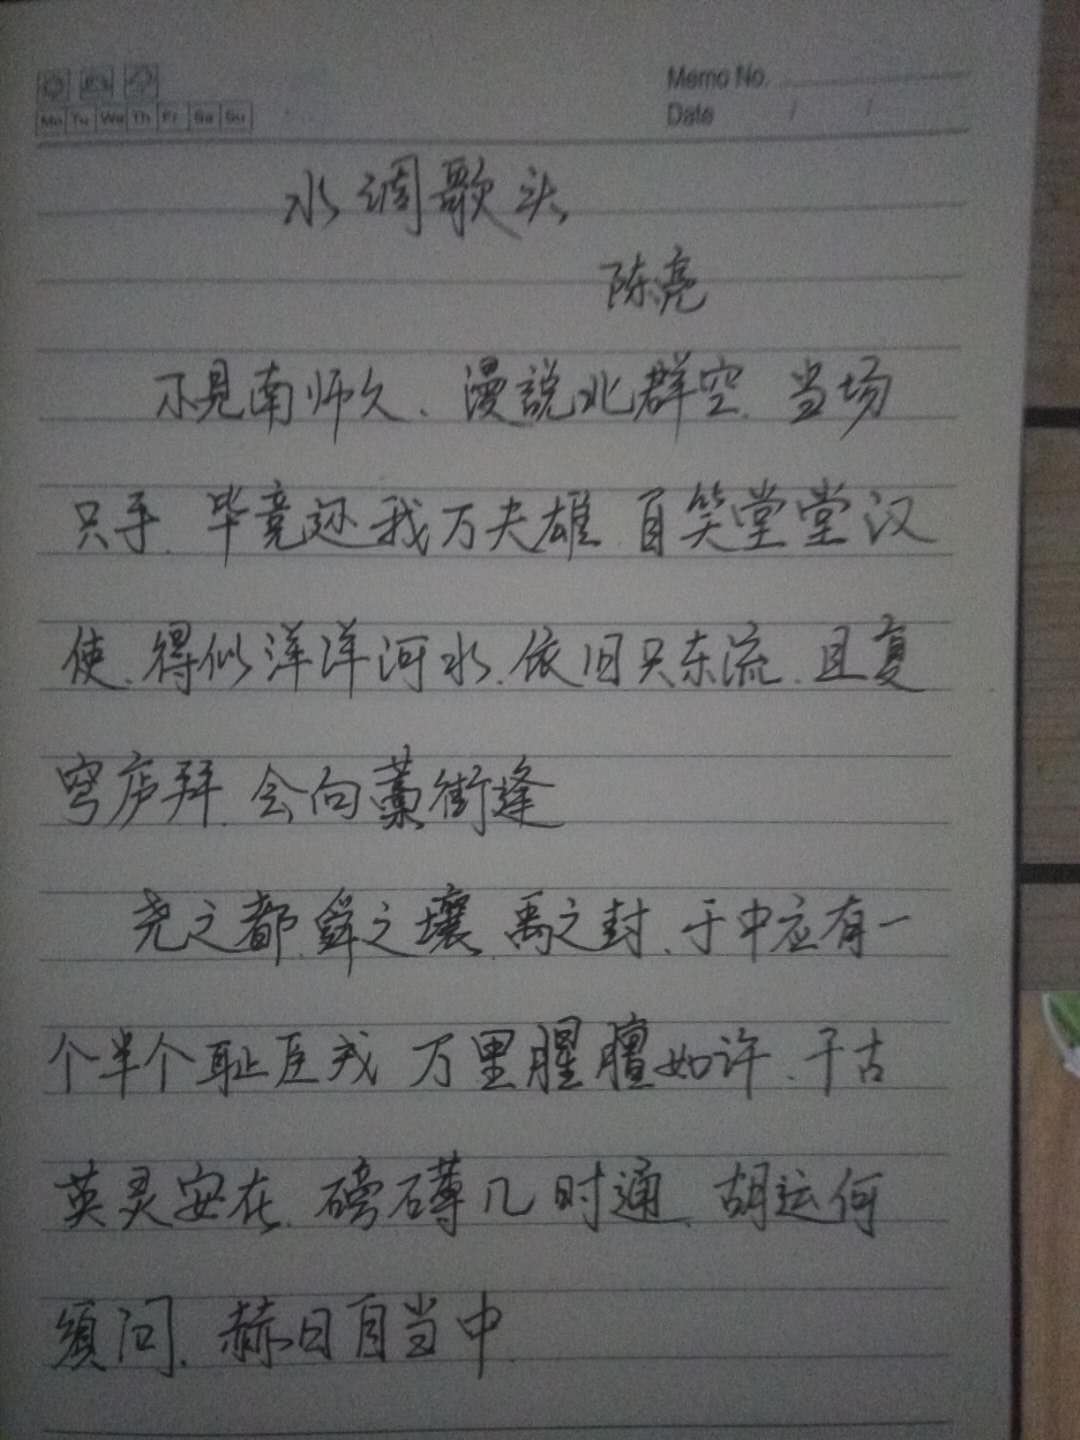 Memo No.
Mo Tu We Th Fr Sa Su
Date / /
水调歌头
陈亮
不見南师久、漫說北群空.当场
只手.毕竟还我万夫雄.自笑堂堂汉
使.得似洋洋河水.依旧只东流.且复
穹庐拜.会向藁街逢
尧之都.舜之壤.禹之封.于中应有一
个半个耻臣戎 万里腥膻如许.千古
英灵安在.磅礴几时通.胡运何
须问.赫日自当中